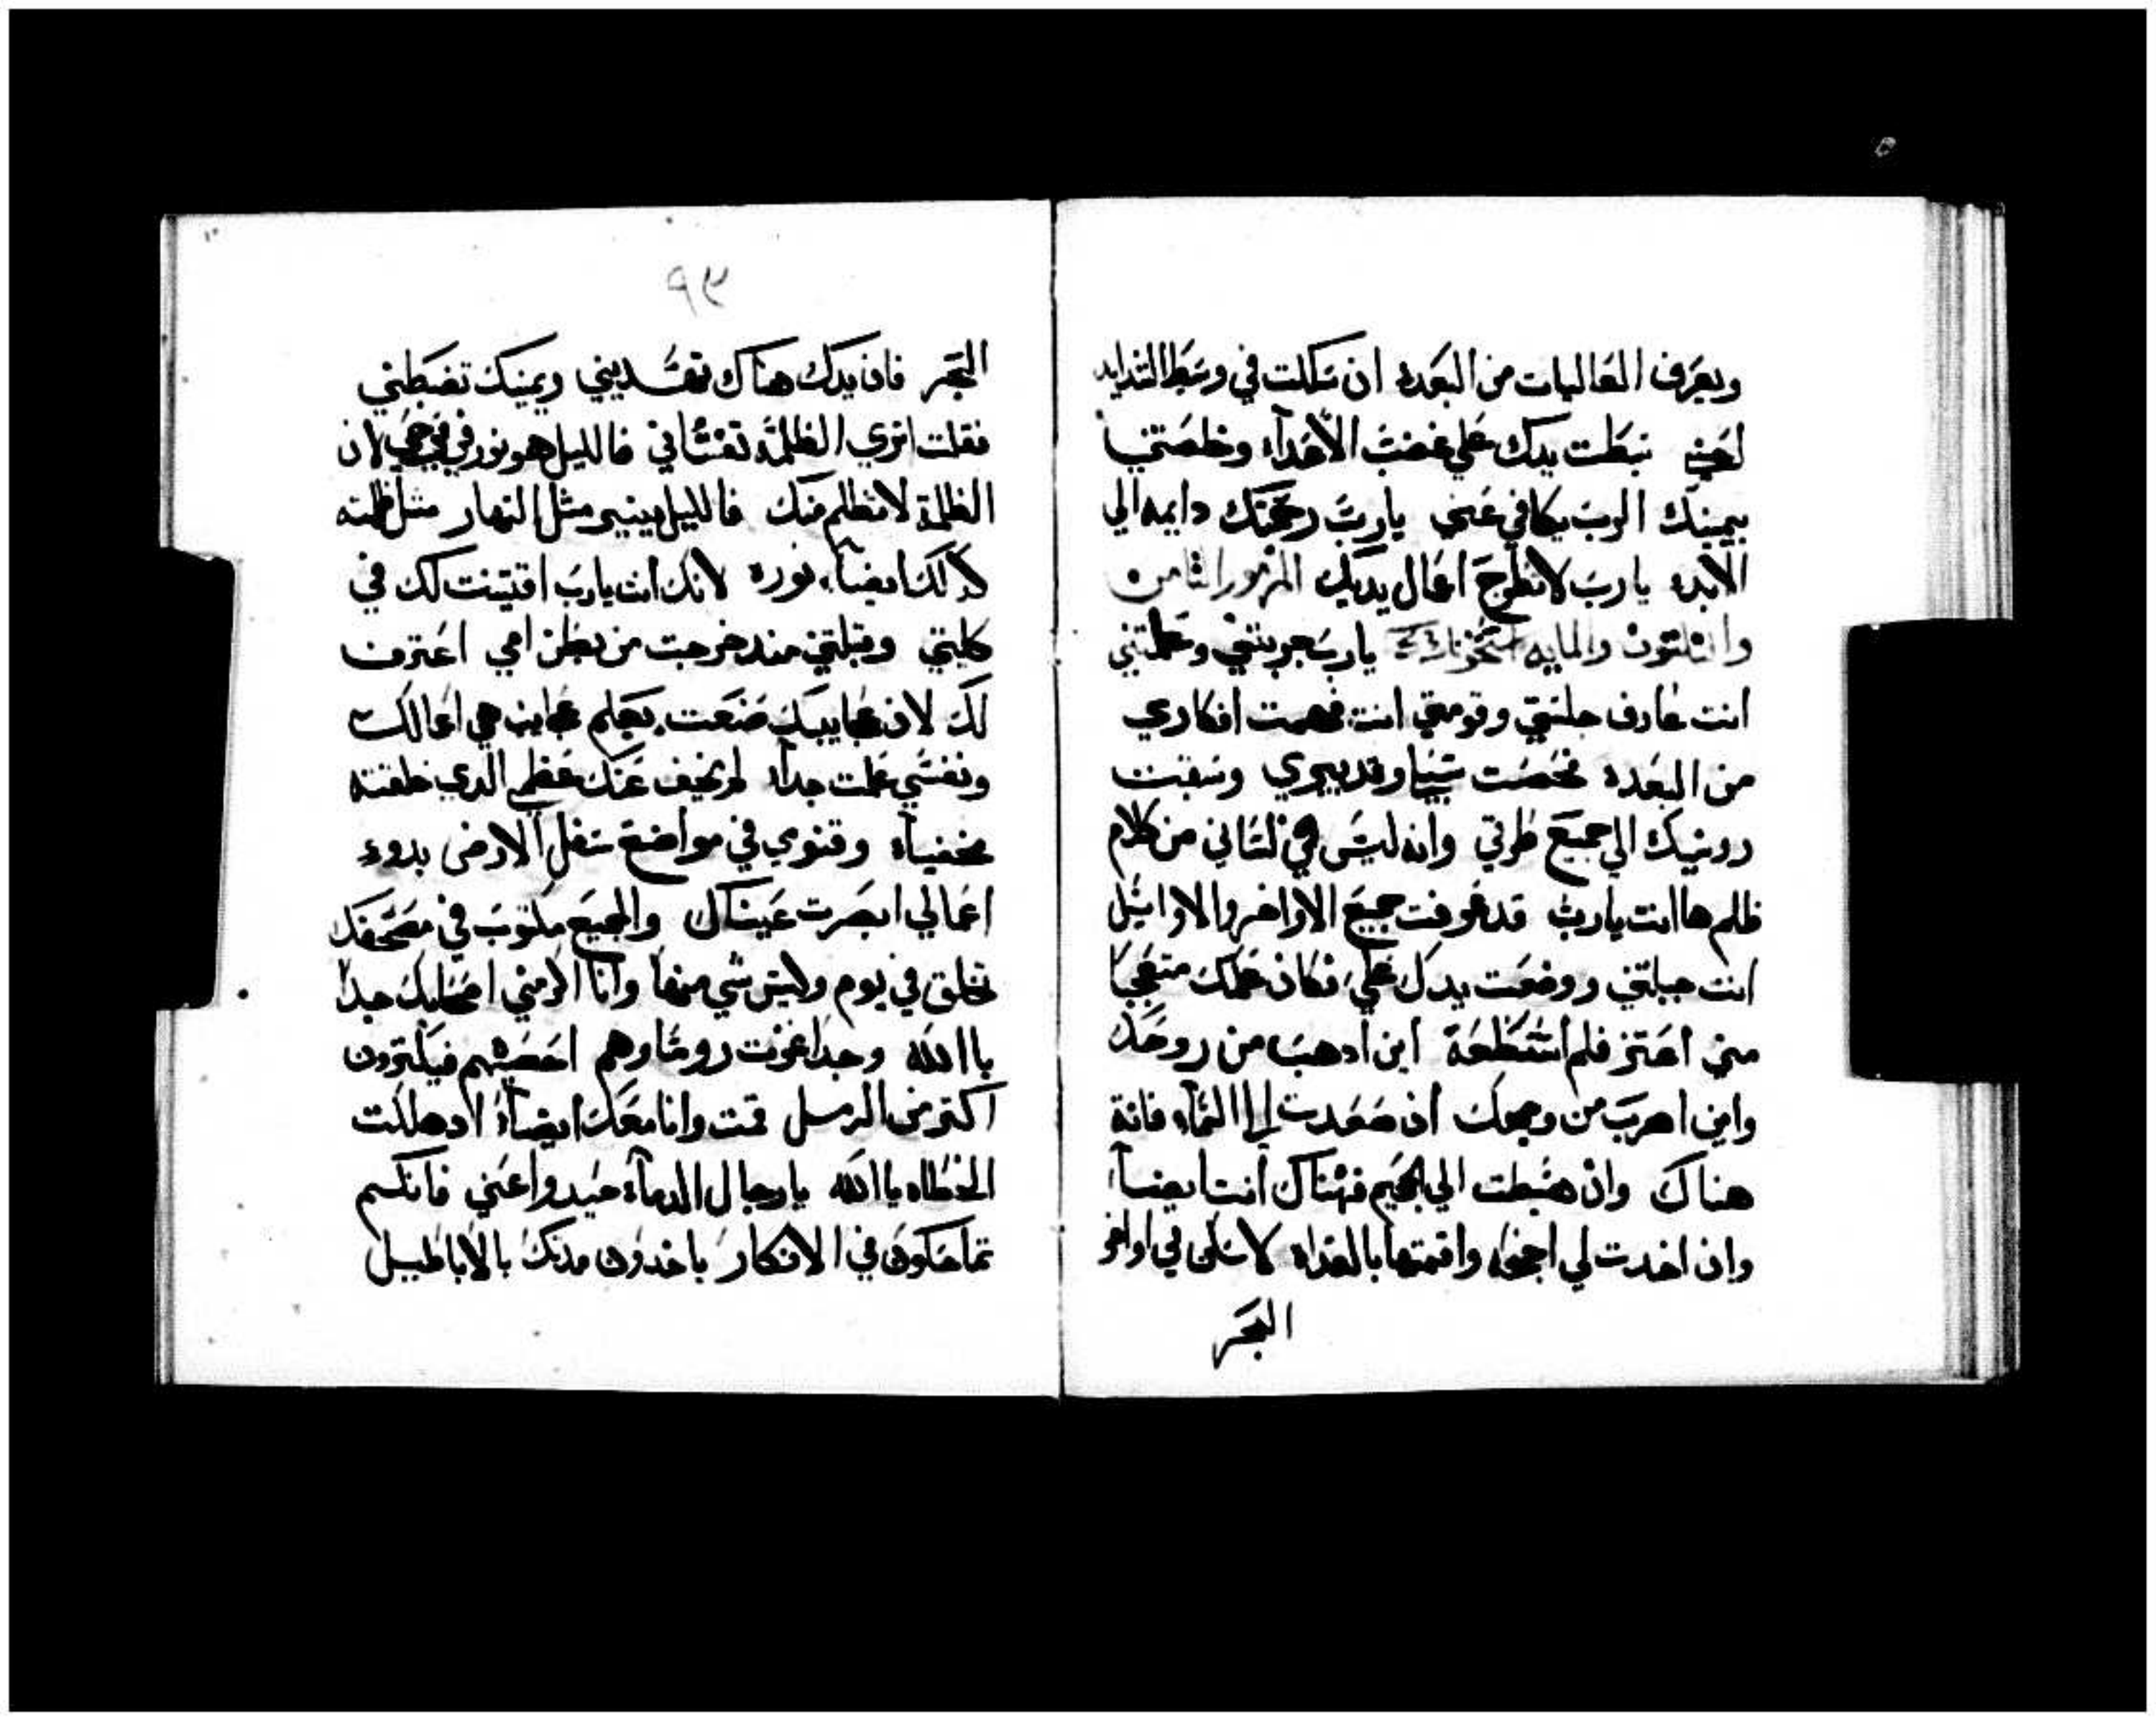 ويعرف المتعاليات من البعده ان سلكت في وسط الشدايد
احيني بسطت يدك علي غضب الأعدآء وخلصتني
بيمينك الرب يكافي عني يارب رحمتك دايمه الي
الابد يارب لا تطرح اعمال يديك المزمور الثامن
والثلثون والمايه يارب جربتني وعلمتني
انت عارف جلستي وقومتي انت فهمت افكاري
من البعده فحصت سبيلي وتدبيري وسبقت
رويتك الي جميع طرقي وانه ليس في لساني من كلام
ظلم هاانت يارب قد عرفت جميع الاواخر والاوايل
انت جبلتني ووضعت يدك علي فكان علمك متعجبا
مني اعتز فلم استطعة اين ادهب من روحك
واين اهرب من وجهك ان صعدت الي السمآء فانة
هناك وان هبطت الي الجحيم فهناك انت ايضآ
وان اخدت لي اجنحه واقمتها بالغداه لاسكن في اواخر
البحر
٩٣
البحر فان يدك هناك تهديني ويمينك تضبطني
فقلت اتري الظلمة تغشاني فالليل هو نور في فرحي لان
الظلمة لا تظلم منك فالليل ينير مثل النهار مثل ظلمته
كدلك ايضآ نوره لانك انت يارب اقتنيت لك في
كليتي وقبلتني مند خرجت من بطن امي اعترف
لك لان عجايبك صنعت بعلم عجايب هي اعمالك
ونفسي علمت جدآ لم يخيف عنك عظمي الدي خلقته
مخفيآ وقنومي في مواضع سفل الارض بدو
اعمالي ابصرت عيناك والجميع مكتوب في مصحفك
تخلق في يوم وليس شي منها وانا اكرمني اصحابك جدا
ياالله وجدا عزت روساوهم احصيهم فيكثرون
اكتر من الرمل قمت وانا معك ايضآ ادهلكت
الخطاه ياالله يارجال الدمآء حيدوا عني فانكم
تماحكون في الافكار ياخدون مدنك بالاباطيل